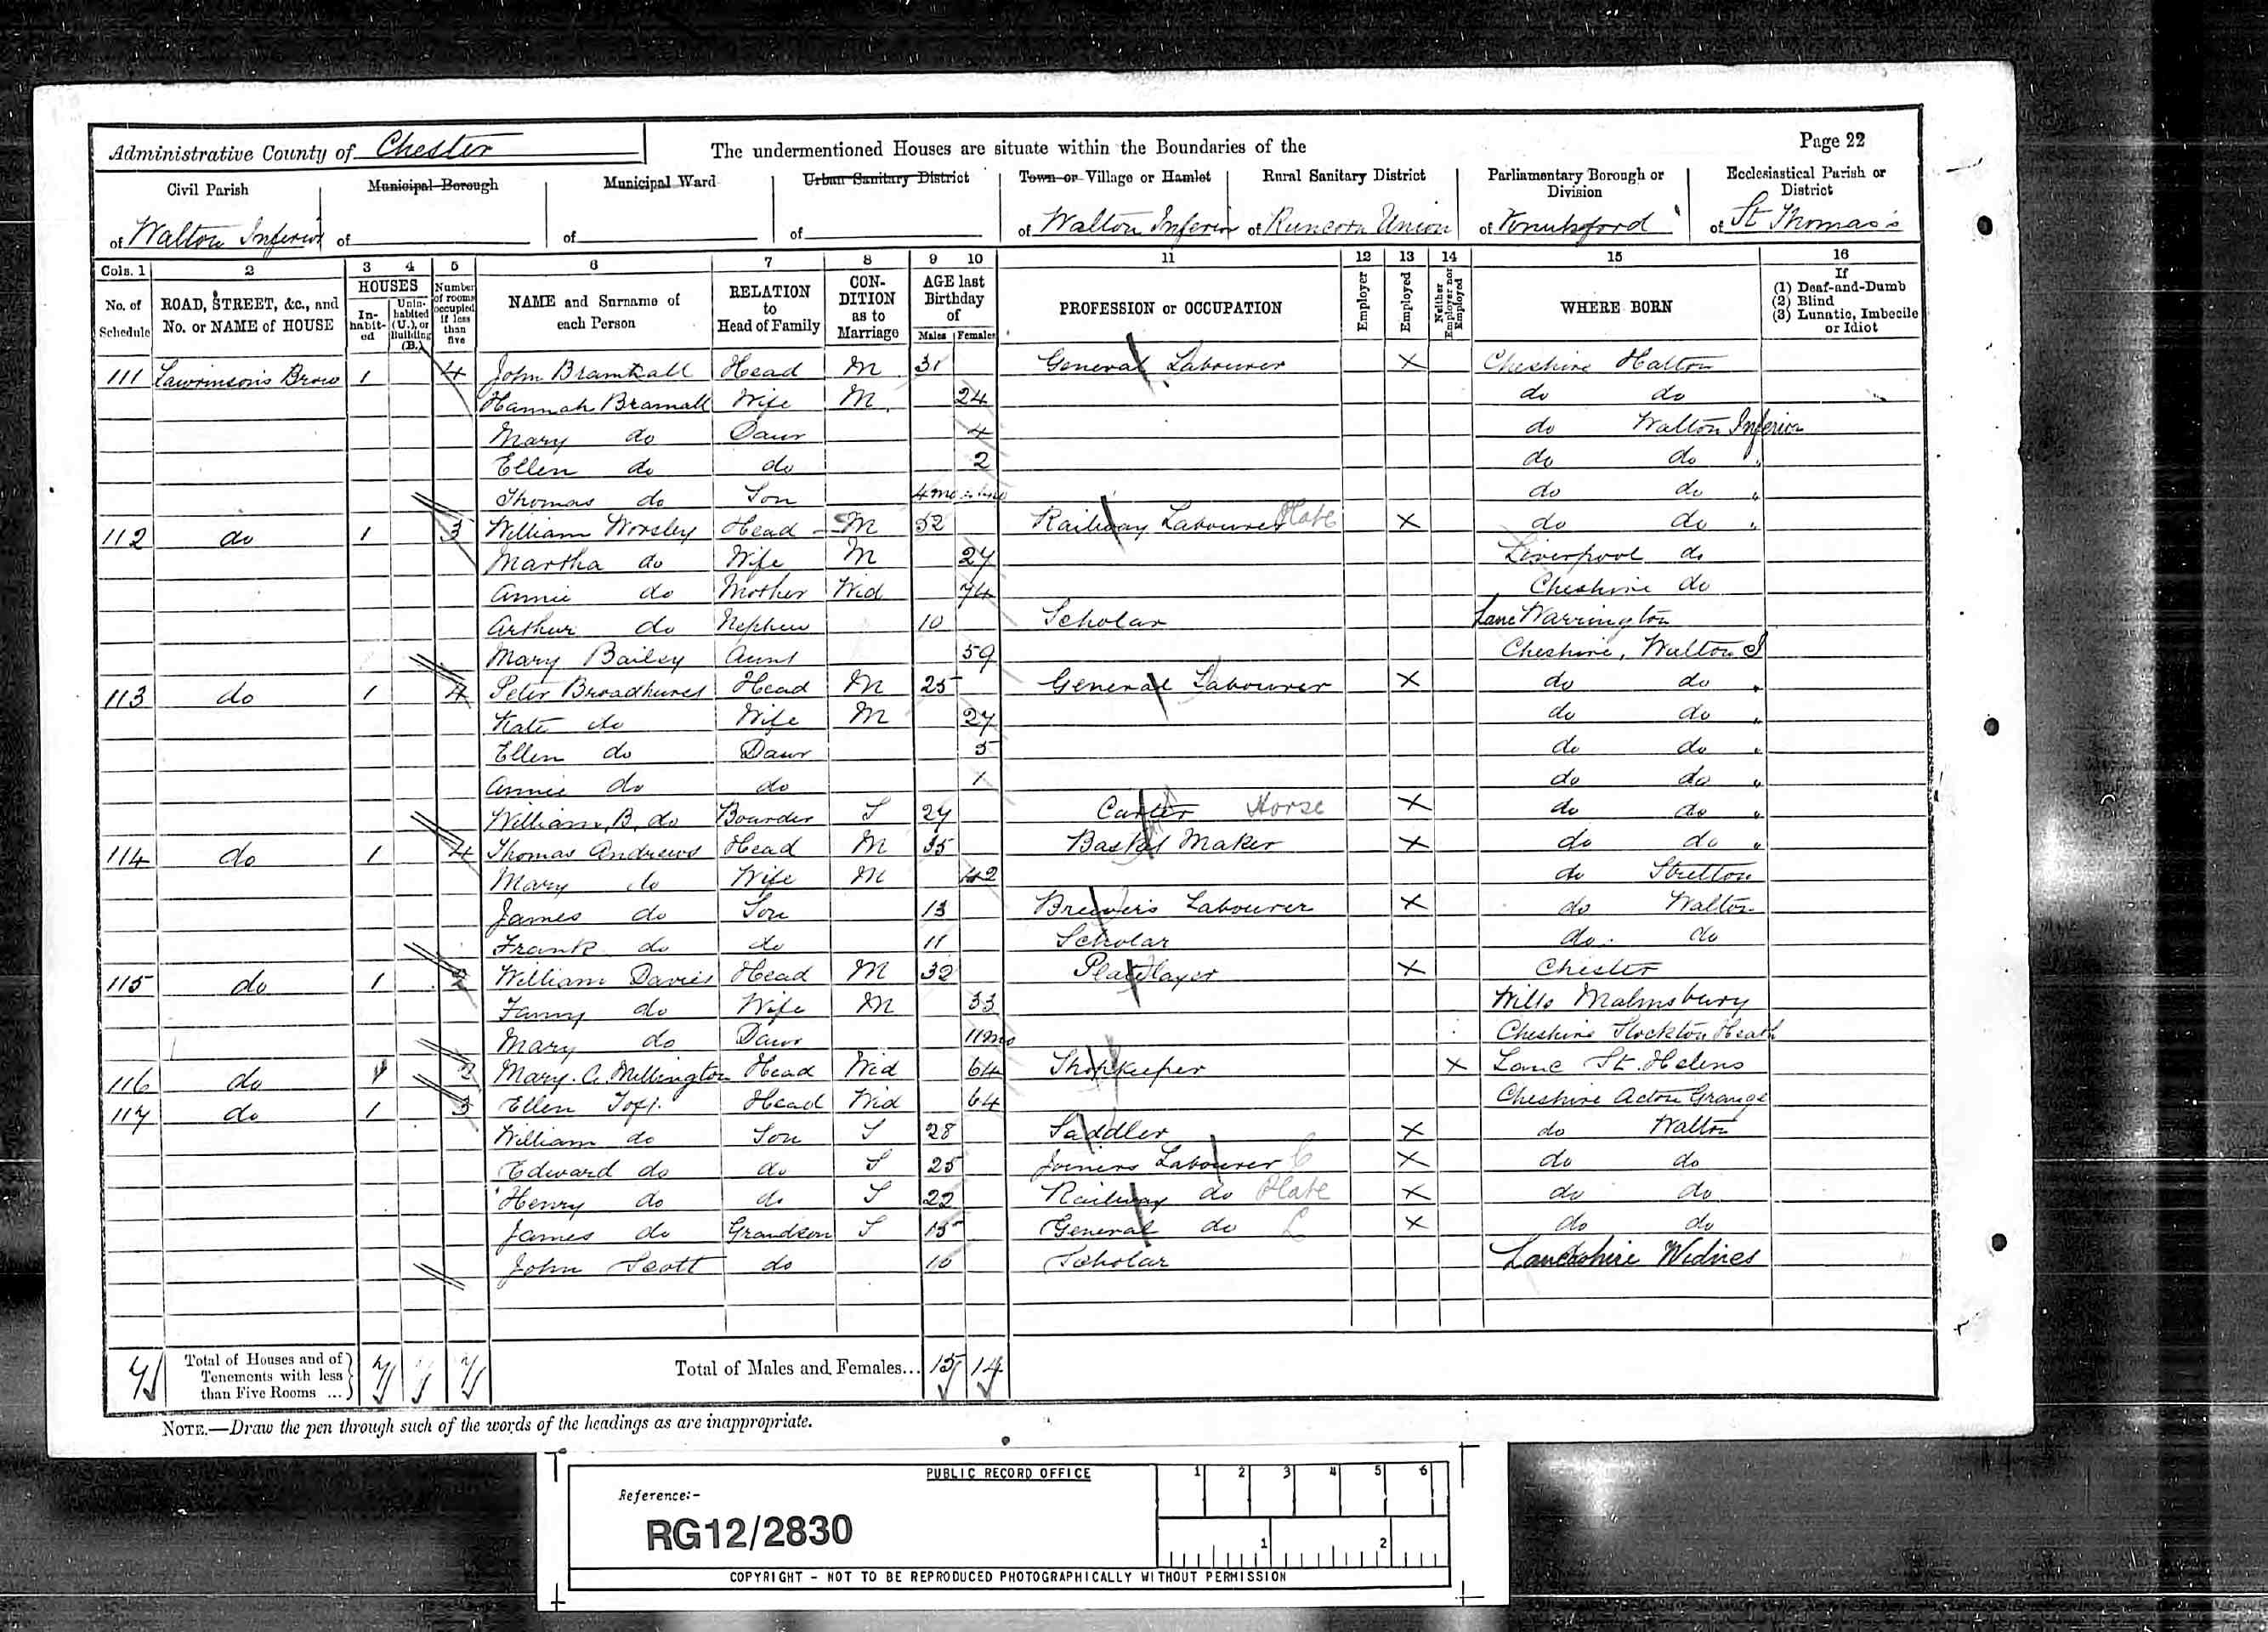 Administrative County of Chester
The undermentioned Houses are situate within the Boundaries of the
Page 22
Civil Parish
Municipal Borough
Municipal Ward
Urban Sanitary District
Town or Village or Hamlet
Rural Sanitary District
Parliamentary Borough or Division
Ecclesiastical Parish or District
of Walton Inferior
of
of
of
of Walton Inferior
of Runcorn Union
of Knutsford
of St Thomas's
Cols. 1 2 3 4 5 6 7 8 9 10 11 12 13 14 15 16
No. of Schedule
ROAD, STREET, &c., and No. or NAME of HOUSE
HOUSES
In-habit-ed
Unin-habited (U.), or Building (B.)
Number of rooms occupied if less than five
NAME and Surname of each Person
RELATION to Head of Family
CON-DITION as to Marriage
AGE last Birthday of
Males Females
PROFESSION or OCCUPATION
Employer
Employed
Neither Employer nor Employed
WHERE BORN
If
(1) Deaf-and-Dumb
(2) Blind
(3) Lunatic, Imbecile or Idiot
111 Lawrinson's Brow 1 4 John Bramhall Head M 31 General Labourer X Cheshire Halton
Hannah Bramall Wife M 24 do do
Mary do Daur 4 do Walton Inferior
Ellen do do 2 do do "
Thomas do Son 4mo do do "
112 do 1 3 William Worsley Head M 52 Railway Labourer Plate X do do "
Martha do Wife M 27 Liverpool do
Annie do Mother Wid 74 Cheshire do
Arthur do Nephew 10 Scholar Lanc Warrington
Mary Bailey Aunt 59 Cheshire, Walton I
113 do 1 4 Peter Broadhurst Head M 25 General Labourer X do do "
Kate do Wife M 27 do do "
Ellen do Daur 5 do do "
Annie do do 1 do do "
William B. do Boarder S 27 Carter Horse X do do "
114 do 1 4 Thomas Andrews Head M 35 Basket Maker X do do "
Mary do Wife M 42 do Stretton
James do Son 13 Brewer's Labourer X do Walton
Frank do do 11 Scholar do do
115 do 1 2 William Davies Head M 32 Platelayer X Chester
Fanny do Wife M 33 Wilts Malmsbury
Mary do Daur 11mo Cheshire Stockton Heath
116 do 1 2 Mary. A. Millington Head Wid 64 Shopkeeper X Lanc St. Helens
117 do 1 3 Ellen Toft Head Wid 64 Cheshire Acton Grange
William do Son S 28 Saddler X do Walton
Edward do do S 25 Joiners Labourer C X do do
Henry do do S 22 Railway do Plate X do do
James do Grandson S 15 General do L X do do
John Scott do 10 Scholar Lancashire Widnes
7 Total of Houses and of Tenements with less than Five Rooms ... 7 7
Total of Males and Females... 15 14
NOTE.—Draw the pen through such of the words of the headings as are inappropriate.
PUBLIC RECORD OFFICE
1 2 3 4 5 6
Reference:-
RG12/2830
1 2
COPYRIGHT - NOT TO BE REPRODUCED PHOTOGRAPHICALLY WITHOUT PERMISSION